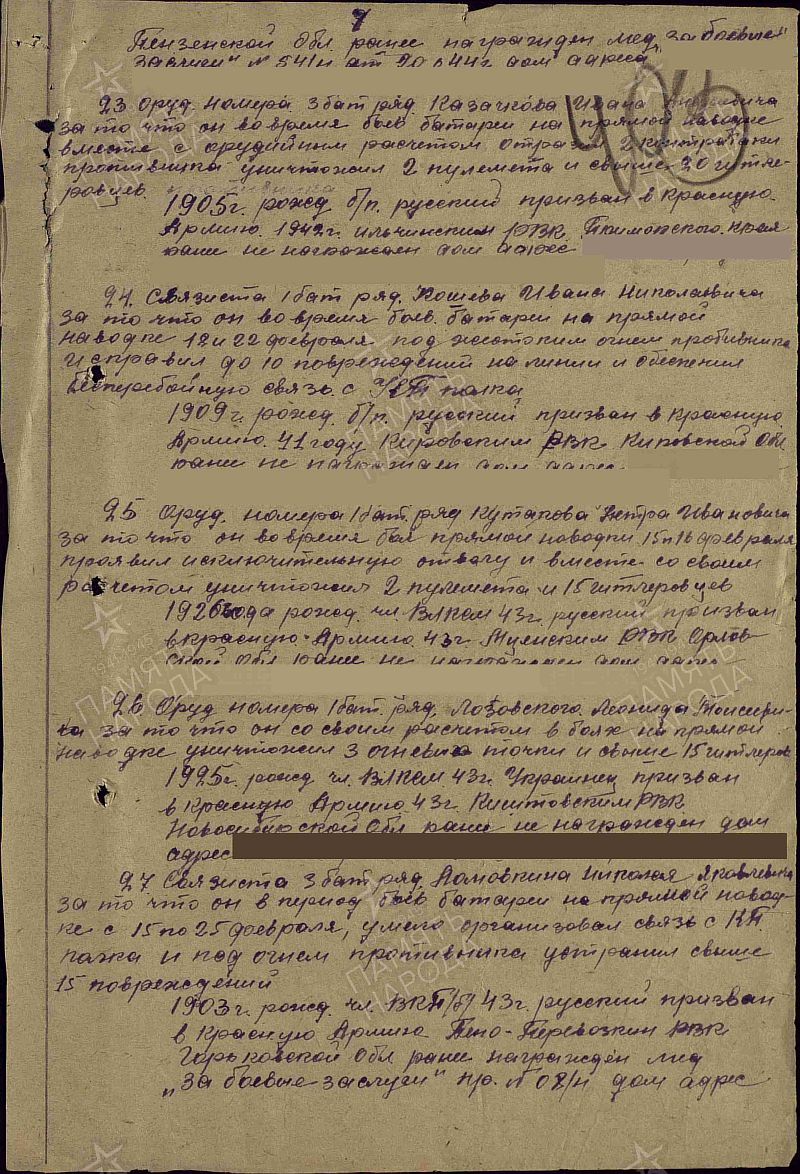 7
Пензенской Обл ранее награжден мед. "за боевые
заслуги" № 541/н от 20 44г дом адрес
23 Оруд. номера 3 бат ряд. Казачкова Ивана
за то что он во время боев батареи на прямой наводке
вместе с орудийным расчетом отразил 2 контратаки
противника уничтожил 2 пулемета и свыше 20 гитле-
ровцев.
1905г. рожд б/п. русский призван в Красную.
Армию. 1942г. Ильчинским РВК. края
ране не награжден дом адрес
24. Связиста 1 бат ряд. Кошева Ивана Николаевича
за то что он во время боев. батареи на прямой
наводке 12 и 22 февраля под жестоким огнем противника
исправил до 10 повреждений на линии и обеспечил
бесперебойную связь с полка
1909г. рожд. б/п. русский призван в Красную
Армию. 41 году Кировским РВК Кировской Обл
ране не награжден дом адрес.
25 Оруд. номера 1 бат. ряд Кутапова Петра Ивановича
за то что он во время боя прямой наводки 15 и 16 февраля
проявил исключительную отвагу и вместе со своим
расчетом уничтожил 2 пулемета и 15 гитлеровцев
1926 года рожд чл. ВЛКСМ 43г. русский призван
в Красную Армию. 43г. РВК Орлов-
ской Обл ране не награжден дом адрес
26. Оруд номера 1 бат. ряд. Лозовского Леонида
за то что он со своим расчетом в боях на прямой
наводке уничтожил 3 огневые точки и свыше 15 гитлеров
1925г. рожд чл. ВЛКСМ 43г. Украинец призван
в Красную Армию. 43г. Киштовским РВК
Новосибирской Обл ране не награжден дом
адрес
27. Связиста 3 бат ряд. Ломовкина Николая Яковлевича
за то что он в период боев батареи на прямой навод-
ке с 15 по 25 февраля, умело организовал связь с КП.
полка и под огнем противника устранил свыше
15 повреждений
1903г. рожд. чл. ВКП/б/ 43г. русский призван
в Красную Армию Тено-Перевозкин РВК
Горьковской Обл ране награжден мед
"За боевые заслуги" пр. № 08/н дом адрес
ПАМЯТЬ НАРОДА